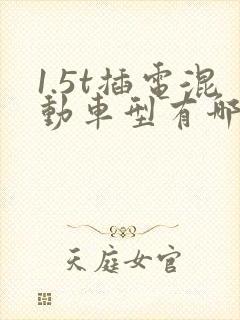 1.5t插電混
動車型有哪
天庭女官